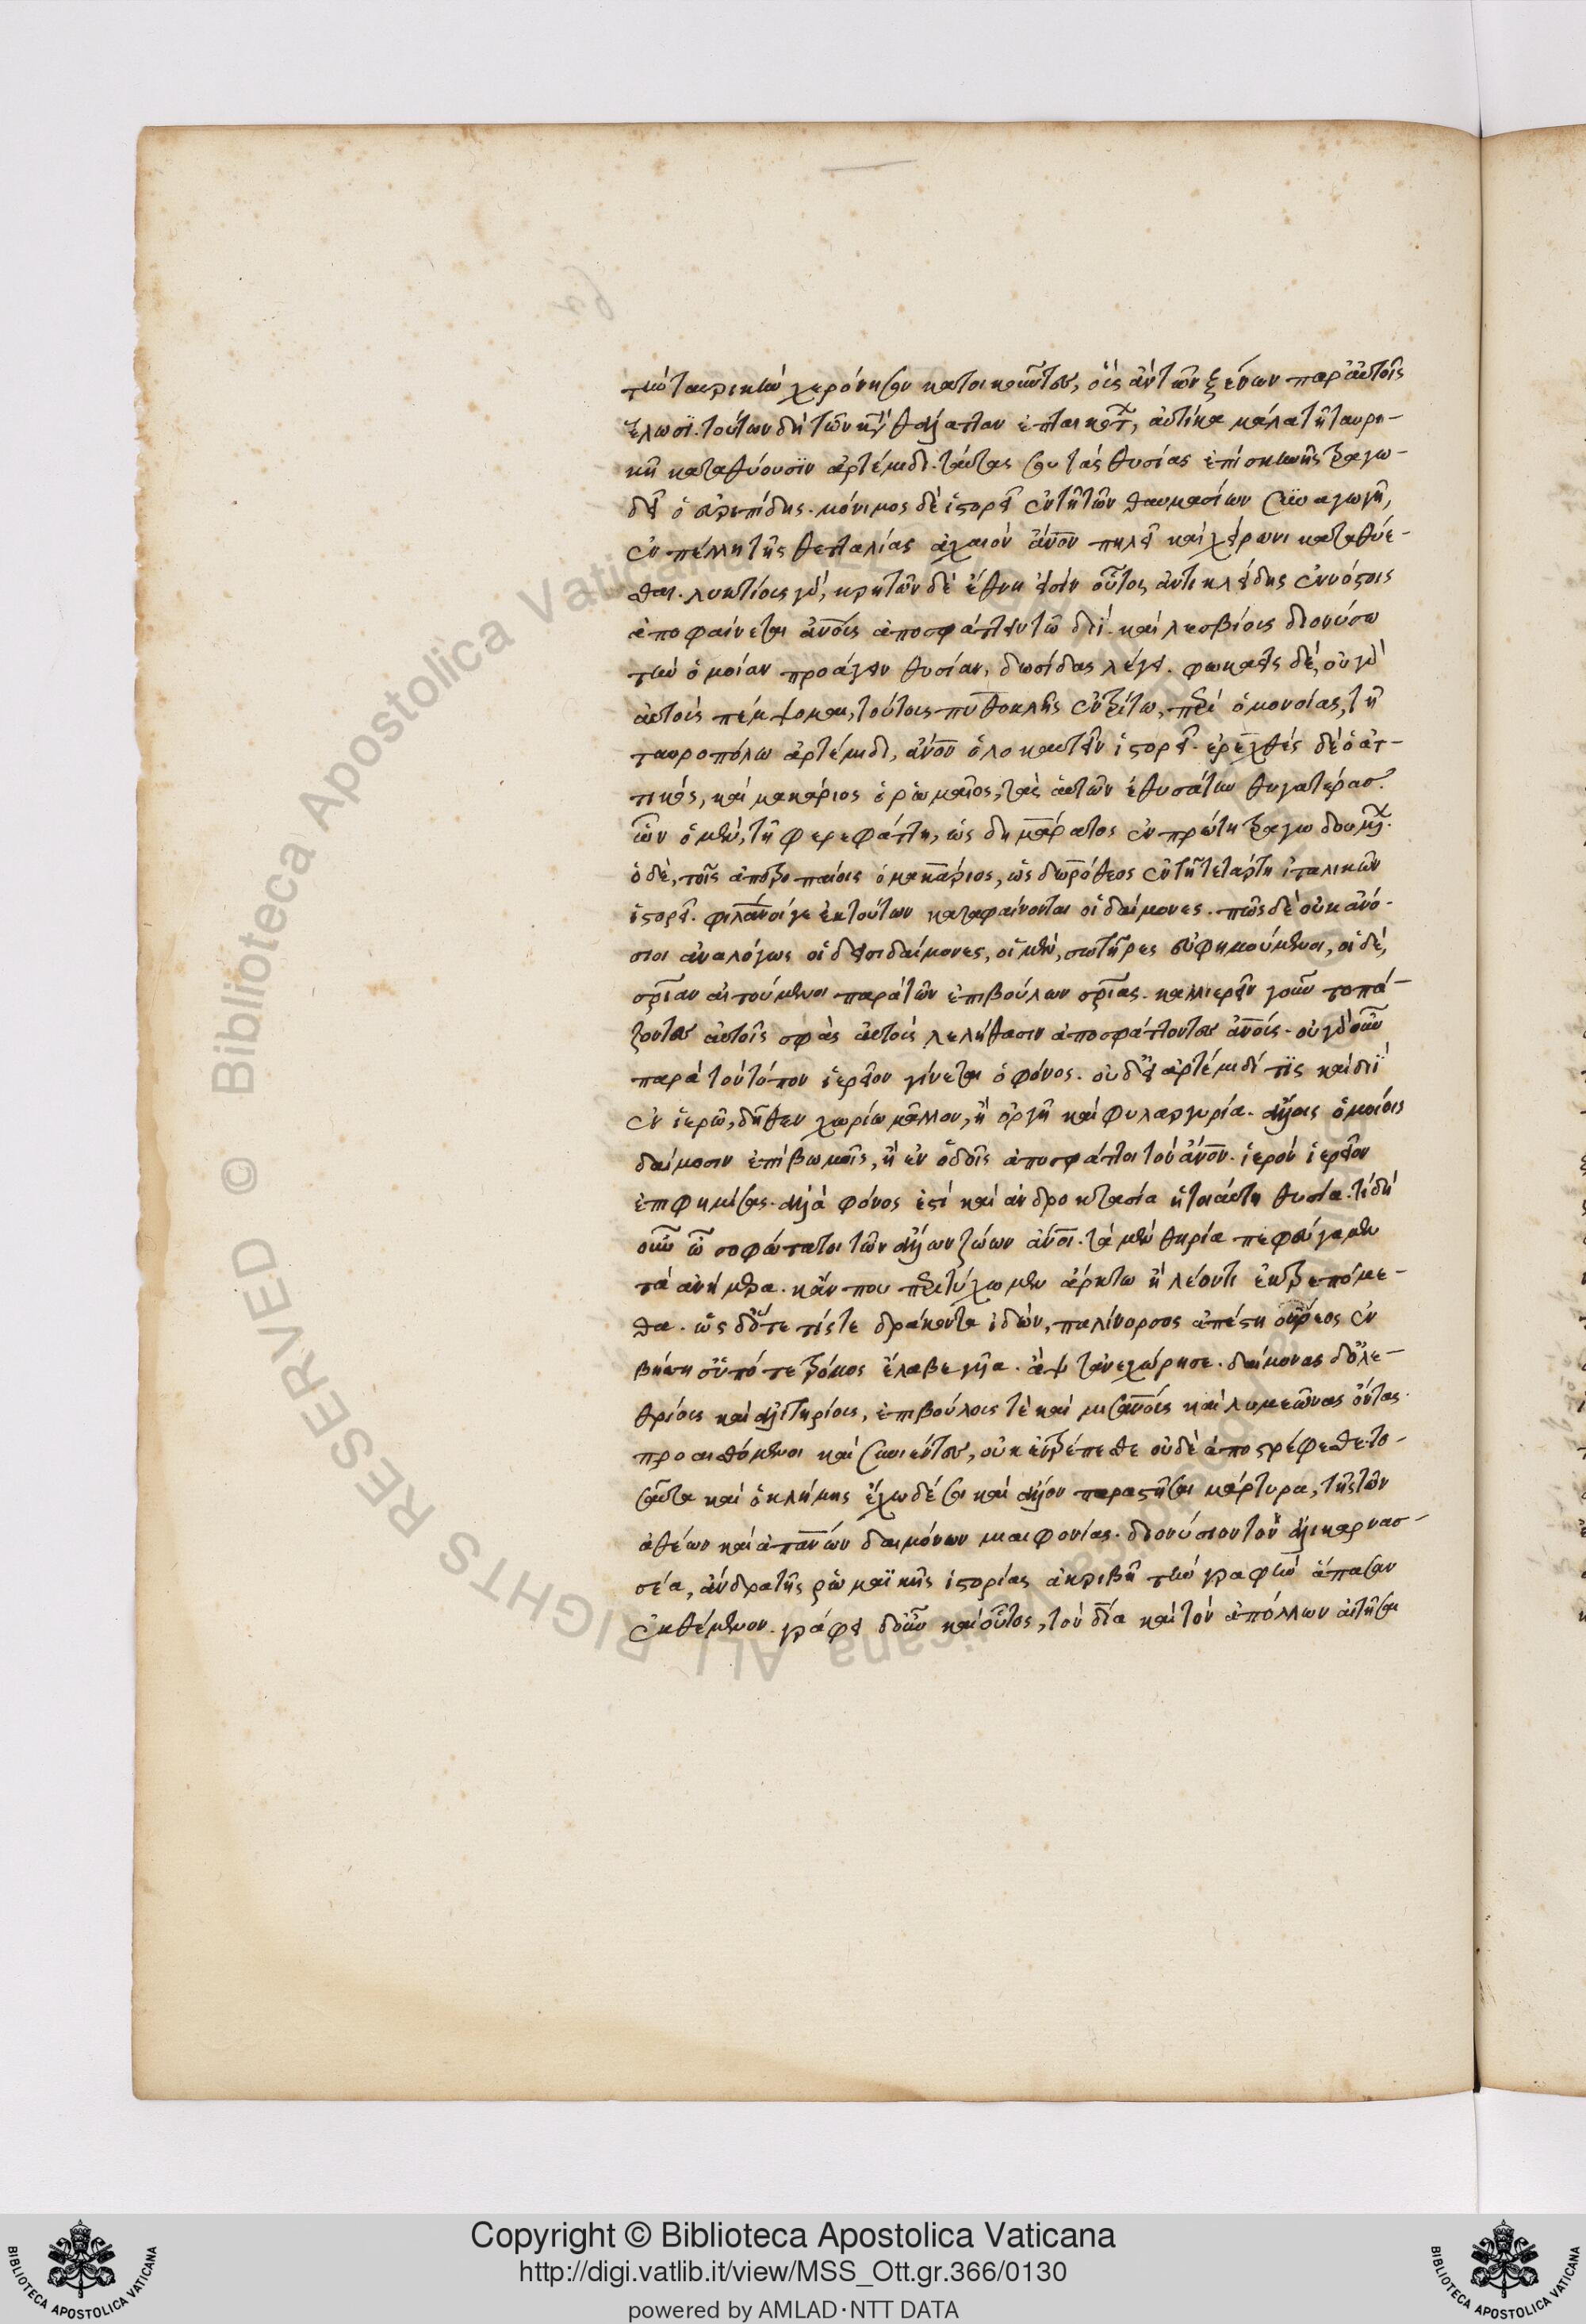 τὴν ταυρικὴν χερόνησον κατοικοῦντες, οὓς ἂν τῶν ξένων παρ' αὐτοῖς
ἕλωσϊ. τούτων δὴ τῶν κτ θάλατταν ἐπταικότ, αὐτίκα μάλα τῇ ταυρι-
κῇ καταθύουσϊν ἀρτέμιδι. ταύτας σου τὰς θυσίας ἐπὶ σκηνῆς τραγω-
δεῖ ὁ εὐριπίδης. μόνιμος δὲ ἱστορεῖ ἐν τῇ τῶν θαυμασίων συναγωγῇ,
ἐν πέλλῃ τῆς θετταλίας ἀχαιὸν ἄνον πηλεῖ καὶ χείρωνι καταθύε-
σθαι. λυκτίους γὰρ, κρητῶν δὲ ἔθνη εἰσὶν οὗτοι, ἀντικλείδης ἐν νόστοις
ἀποφαίνεται ἀνους ἀποσφάττειν τῶ διί. καὶ λεσβίους διονύσω
τὴν ὁμοίαν προάγειν θυσίαν, δωσίδας λέγει. φωκαεῖς δὲ, οὐ γὰρ
αὐτοὺς πέμψομαι, τούτους πυθοκλῆς ἐν τρίτω, περὶ ὁμονοίας, τῇ
ταυροπόλω ἀρτέμιδι, ἄνον ὁλοκαυτεῖν ἱστορεῖ. ἐρεχθεὺς δὲ ὁ ἀτ-
τικὸς, καὶ μακάριος ὁ ρὡμαῖος, τὰς αὑτῶν ἐθυσάτην θυγατέρας.
ὧν ὁ μὲν, τῇ φερεφάττῃ, ὡς δημάρατος ἐν πρώτῃ τραγωδουμ.
ὁ δὲ, τοῖς ἀποτροπαίοις ὁ μακάριος, ὡς δωρόθεος ἐν τῇ τετάρτῃ ἰταλικῶν
ἱστορεῖ. φιλάνοί γε ἐκ τούτων καταφαίνονται οἱ δαίμονες. πῶς δὲ οὐκ ἀνό-
σιοι ἀναλόγως οἱ δεισιδαίμονες, οἱ μὲν, σωτῆρες εὐφημούμενοι, οἱ δὲ,
σρίαν αἰτούμενοι παρὰ τῶν ἐπιβούλων σρίας. καλλιερεῖν γοῦν τοπά-
ζοντες αὐτοῖς σφᾶς αὐτοὺς λελήθασιν ἀποσφάττοντες ἀνους. οὐ γὰρ οὖν
παρὰ τὸν τόπον ἱερεῖον γίνεται ὁ φόνος. οὐδ' εἰ ἀρτέμιδί τϊς καὶ διῒ
ἐν ἱερῶ, δῆθεν χωρίω μᾶλλον, ἢ ὀργῇ καὶ φυλαργυρία. ἄλλοις ὁμοίοις
δαίμοσιν ἐπὶ βωμοῖς, ἢ ἐν ὁδοῖς ἀποσφάττοι τὸν ἄνον. ἱερὸν ἱερεῖον
ἐπιφημίσας. ἀλλὰ φόνος ἐστὶ καὶ ἀνδροκτασία ἡ τοιαύτη θυσία. τί δὴ
οὖν ὦ σοφώτατοι τῶν ἄλλων ζώων ἄνοι. τὰ μὲν θηρία πεφεύγαμεν
τὰ ἀνήμερα. κἄν που περιτύχωμεν ἄρκτω ἢ λέοντι ἐκτρεπόμε-
θα. ὡς δ' ὅτε τίς τε δράκοντα ἰδὼν, παλίνορσος ἀπέστη οὔρεος ἐν
βήσσῃ ὑπό τε τρόμος ἔλαβε γῆα. ἄψ τ' ἀνεχώρησε. δαίμονας δ' ὀλε-
θρίους καὶ ἀλιτηρίους, ἐπιβούλους τὲ καὶ μισάνους καὶ λυμεῶνας ὄντας
προαισθόμενοι καὶ συνιέντες, οὐκ ἐκτρέπεσθε οὐδὲ ἀποστρέφεσθε το-
σαῦτα καὶ ὁ κλήμης ἔχω δέ σοι καὶ ἄλλον παραστῆσαι μάρτυρα, τῆς τῶν
ἀθέων καὶ ἀπάνων δαιμόνων μιαιφονίας. διονύσιον τὸν ἁλικαρνασ-
σέα, ἄνδρα τῆς ρὡμαϊκῆς ἱστορίας ἀκριβῆ τὴν γραφὴν ἅπασαν
ἐκθέμενον. γράφει δ' οὖν καὶ οὗτος, τὸν δία καὶ τὸν ἀπόλλων αἰτῆσαι